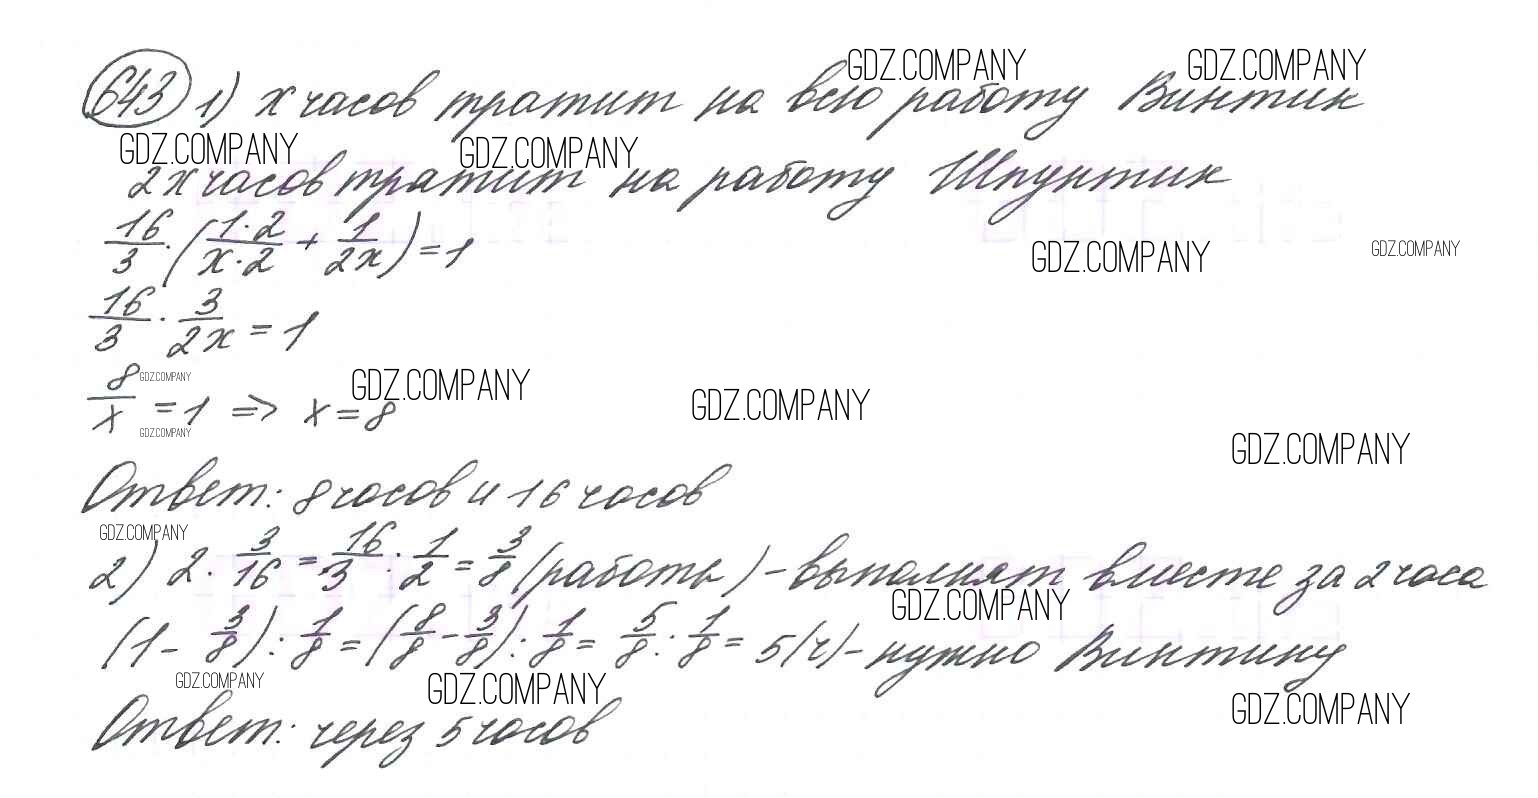 GDZ.COMPANY GDZ.COMPANY
643 1) х часов тратит на всю работу Винтик
GDZ.COMPANY GDZ.COMPANY
2х часов тратит на работу Шпунтик
16/3 · (1·2/х·2 + 1/2х) = 1
GDZ.COMPANY GDZ.COMPANY
16/3 · 3/2х = 1
GDZ.COMPANY GDZ.COMPANY GDZ.COMPANY
8/х = 1 => х = 8
GDZ.COMPANY GDZ.COMPANY
Ответ: 8 часов и 16 часов
GDZ.COMPANY
2) 2 · 3/16 = 16/3 · 1/2 = 3/8 (работы) - выполнят вместе за 2 часа
GDZ.COMPANY
(1 - 3/8) : 1/8 = (8/8 - 3/8) : 1/8 = 5/8 : 1/8 = 5 (ч) - нужно Винтину
GDZ.COMPANY GDZ.COMPANY GDZ.COMPANY
Ответ: через 5 часов